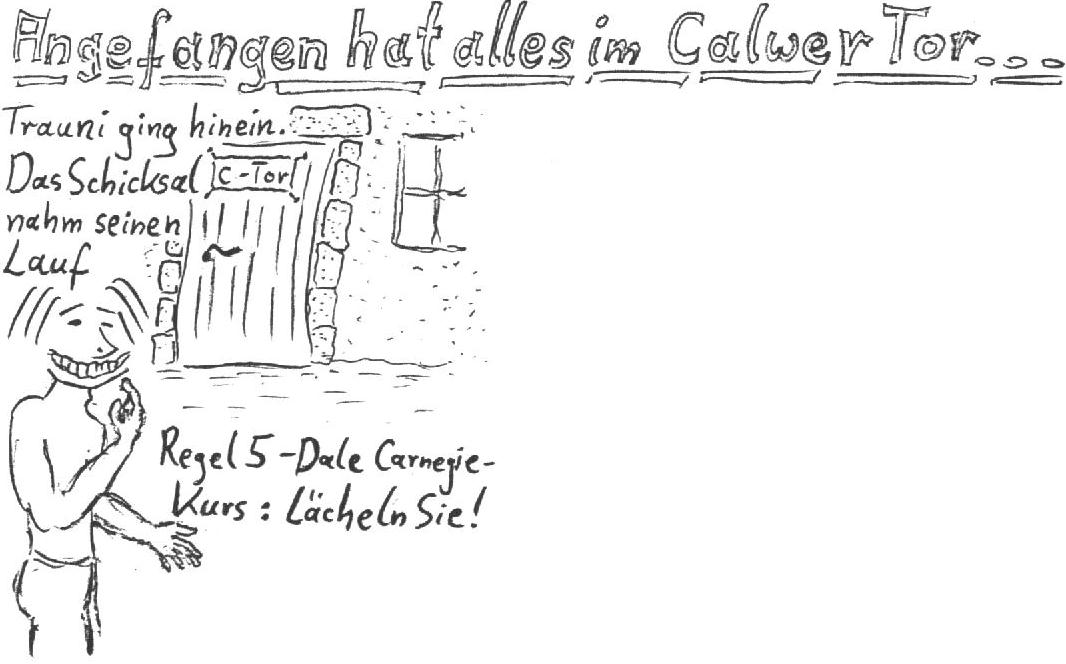 Angefangen hat alles im Calwer Tor...
Trauni ging hinein.
Das Schicksal
nahm seinen
Lauf
C-Tor
Regel 5 - Dale Carnegie-
Kurs : Lächeln Sie!